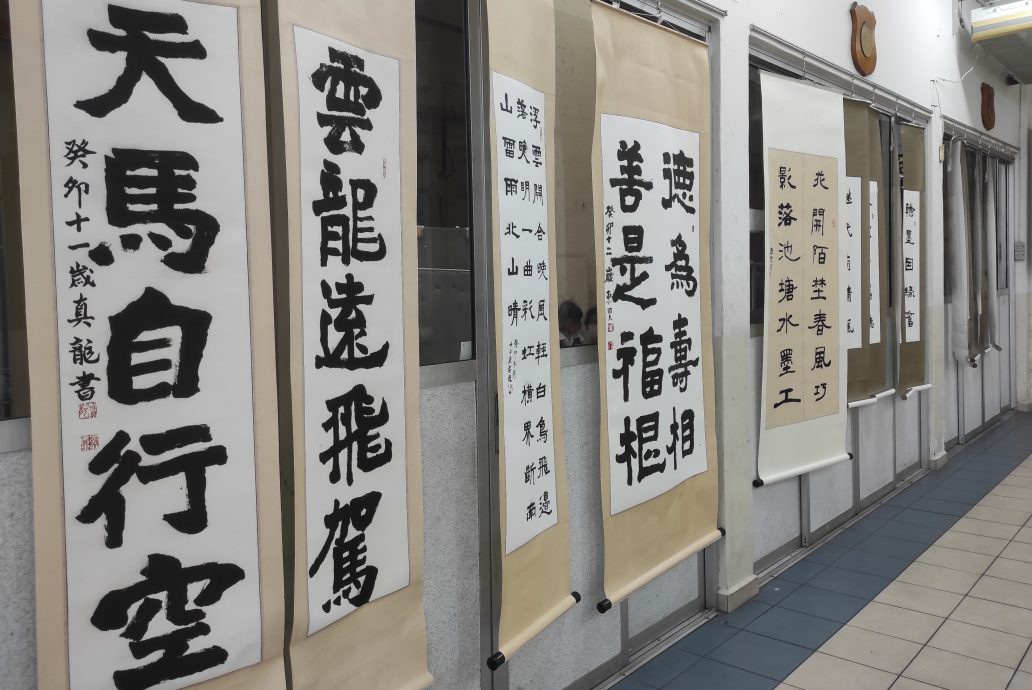 天馬自行空
癸卯十一歲真龍書
雲龍遠飛駕
浮雲開合晚風輕白鳥飛邊
落晚明一曲彩虹橫界斷南
山雷雨北山晴
德為壽相
善是福樞
癸卯十二歲
花開陌埜春風巧
影落池塘水墨工
翰墨因緣舊